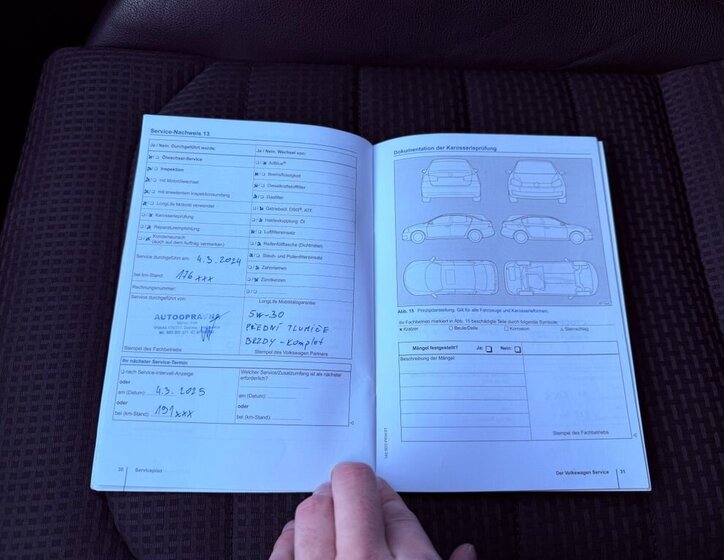 Service-Nachweis 13
Ja / Nein, Durchgeführt wurde:
Ölwechsel-Service
Inspektion
mit Motorölwechsel
mit erweitertem Inspektionsumfang
LongLife Motoröl verwendet
Karosserieprüfung
Reparaturempfehlung
Kundenwunsch
(auch auf dem Auftrag vermerken)
Service durchgeführt am: 4.3.2024
bei km-Stand: 176 xxx
Rechnungsnummer:
Service durchgeführt von:
AUTOOPRAVNA
Stempel des Fachbetriebs
Ja / Nein, Wechsel von:
AdBlue®
Bremsflüssigkeit
Dieselkraftstofffilter
Gasfilter
Getriebeöl, DSG®, ATF
Haldexkupplung: Öl
Luftfiltereinsatz
Reifenfüllflasche (Dichtmittel)
Staub- und Pollenfiltereinsatz
Zahnriemen
Zündkerzen
LongLife Mobilitätsgarantie:
5W-30
PŘEDNÍ TLUMIČE
BRZDY - komplet
Stempel des Volkswagen Partners
Ihr nächster Service-Termin
nach Service-Intervall-Anzeige
oder
am (Datum): 4.3.2025
oder
bei (km-Stand): 191 xxx
Welcher Service/Zusatzumfang ist als nächster
erforderlich?
am (Datum):
oder
bei (km-Stand):
30 Serviceplan
Dokumentation der Karosserieprüfung
Abb. 15 Prinzipdarstellung. Gilt für alle Fahrzeuge und Karosserieformen.
Ihr Fachbetrieb markiert in Abb. 15 beschädigte Teile durch folgende Symbole:
Kratzer Beule/Delle Korrosion Steinschlag
Mängel festgestellt? Ja: Nein:
Beschreibung der Mängel:
Stempel des Fachbetriebs
Der Volkswagen Service 31